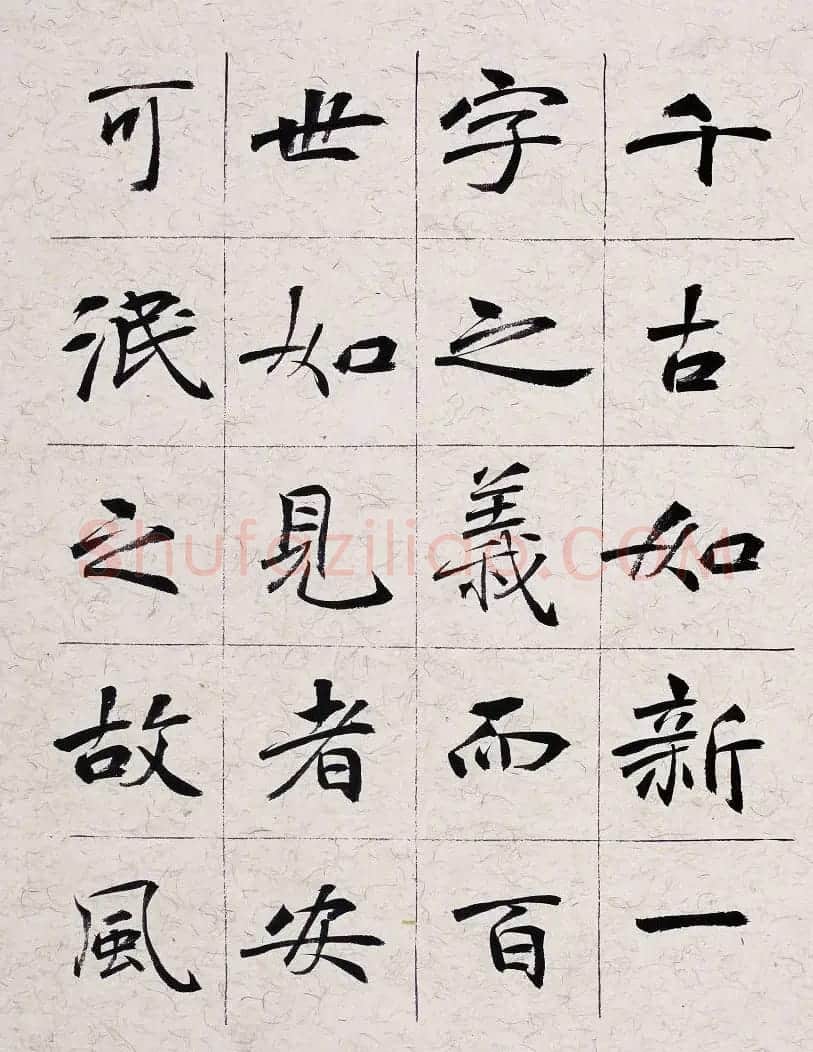 千古如新一
字之義而百
世如見者安
可泯之故風
Shufaziliao.COM